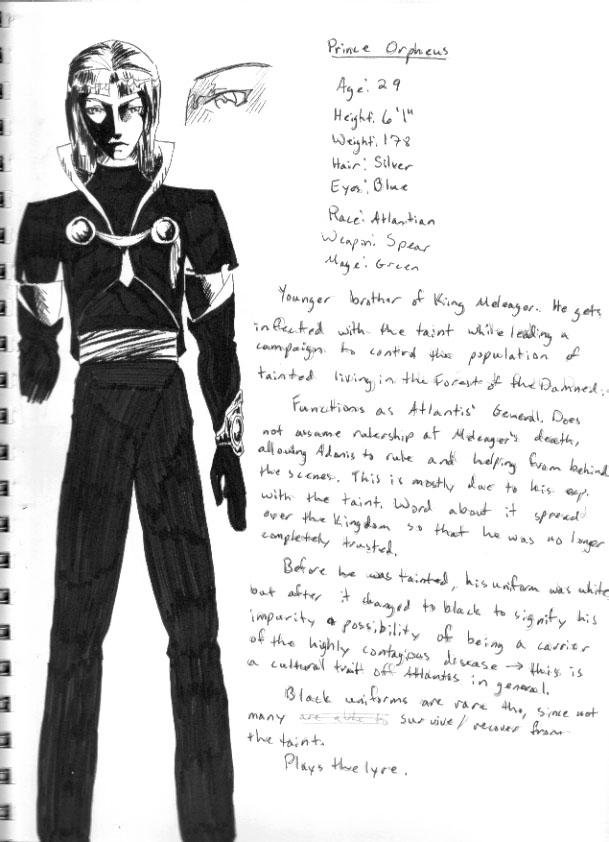 Prince Orpheus
Age: 29
Height: 6'1"
Weight: 178
Hair: Silver
Eyes: Blue
Race: Atlantian
Weapon: Spear
Mage: Green
Younger brother of King Meleager. He gets
infected with the taint while leading a
campaign to control the population of
tainted living in the Forest of the Damned.
Functions as Atlantis' General. Does
not assume rulership at Meleager's death,
allowing Adonis to rule and helping from behind
the scenes. This is mostly due to his exp.
with the taint. Word about it spread
over the kingdom so that he was no longer
completely trusted.
Before he was tainted, his uniform was white
but after it changed to black to signify his
impurity & possibility of being a carrier
of the highly contagious disease → this is
a cultural trait of Atlantis in general.
Black uniforms are rare tho, since not
many are able to survive/recover from
the taint.
Plays the lyre.